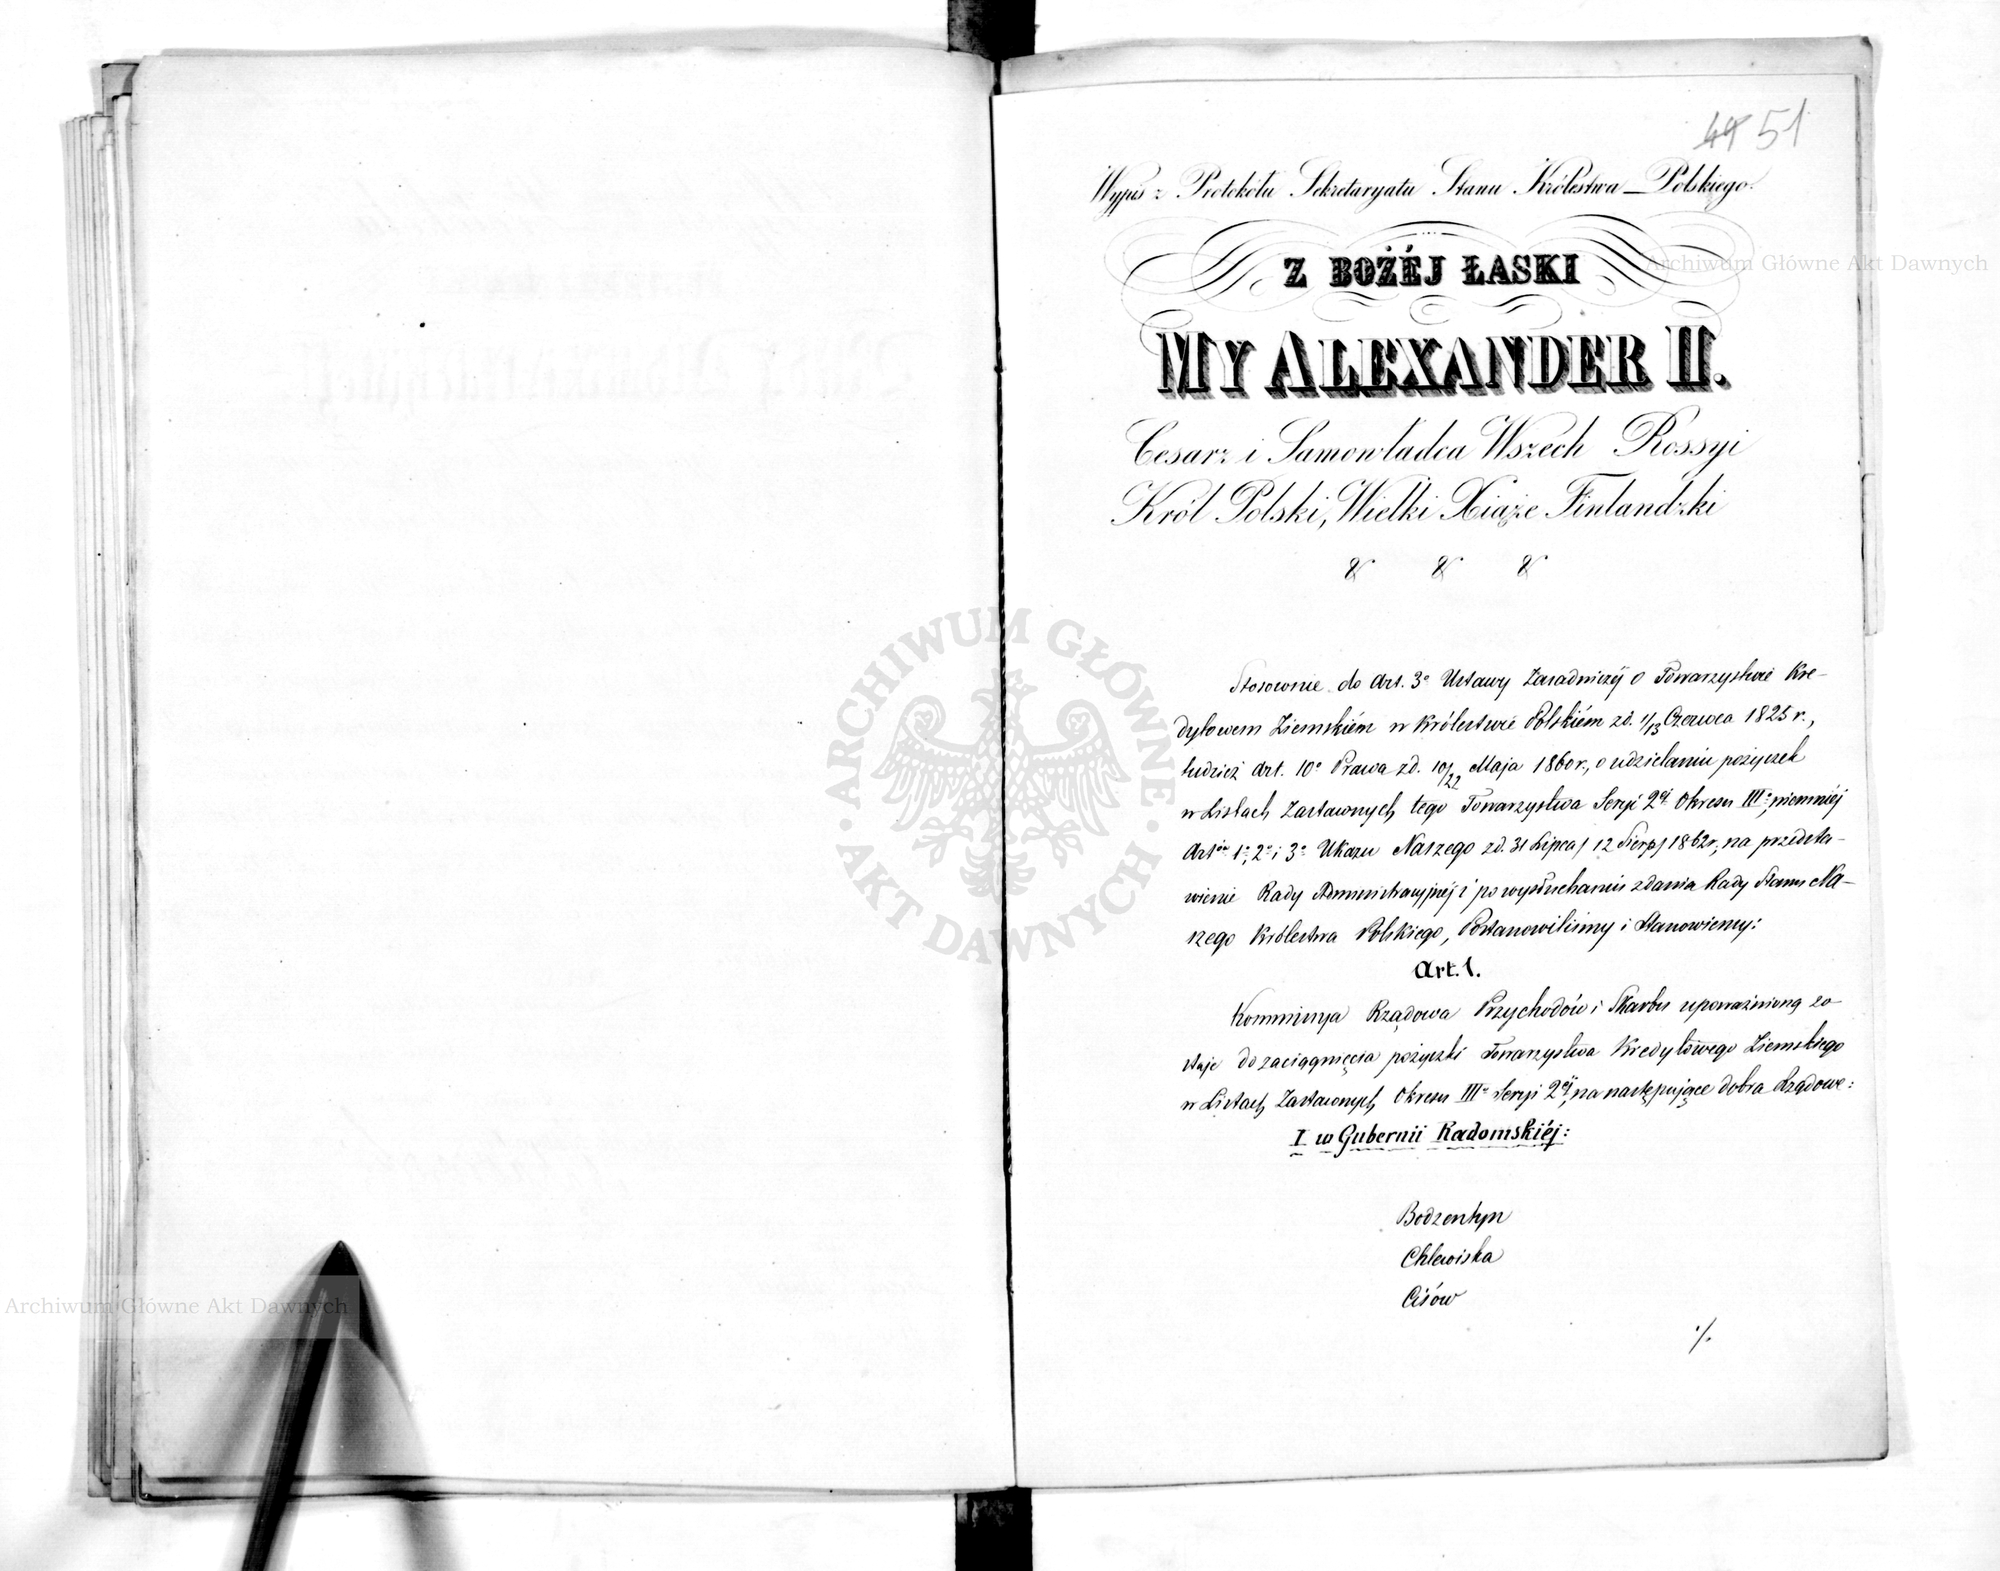 49 51
Wypis z Protokółu Sekretaryatu Stanu Królestwa Polskiego.
Z BOŻÉJ ŁASKI
MY ALEXANDER II.
Cesarz i Samowładca Wszech Rossyi
Król Polski, Wielki Xiąże Finlandzki
& & &
Stosownie do Art. 3º Ustawy Zasadniczéj o Towarzystwie Kre-
dytowem Ziemskiém w Królestwie Polskiém z d. 1/13 Czerwca 1825 r.,
tudzież Art. 10º Prawa z d. 10/22 Maja 1860 r., o udzielaniu pożyczek
w Listach Zastawnych tego Towarzystwa Seryi 2éj Okresu IIIº, niemniéj
Artów 1º, 2º i 3º Ukazu Naszego z d. 31 Lipca / 12 Sierp / 1862 r, na przedsta-
wienie Rady Administracyjnéj i po wysłuchaniu zdania Rady Stanu Na-
szego Królestwa Polskiego, Postanowiliśmy i Stanowiemy:
Art. 1.
Kommissya Rządowa Przychodów i Skarbu upoważnioną zo-
staje do zaciągnięcia pożyczki Towarzystwa Kredytowego Ziemskiego
w Listach Zastawnych Okresu IIIº Seryi 2éj, na następujące dobra Rządowe:
I w Gubernii Radomskiéj:
Bodzentyn
Chlewiska
Cisów
./.
Archiwum Główne Akt Dawnych
ARCHIWUM GŁÓWNE
AKT DAWNYCH
Archiwum Główne Akt Dawnych